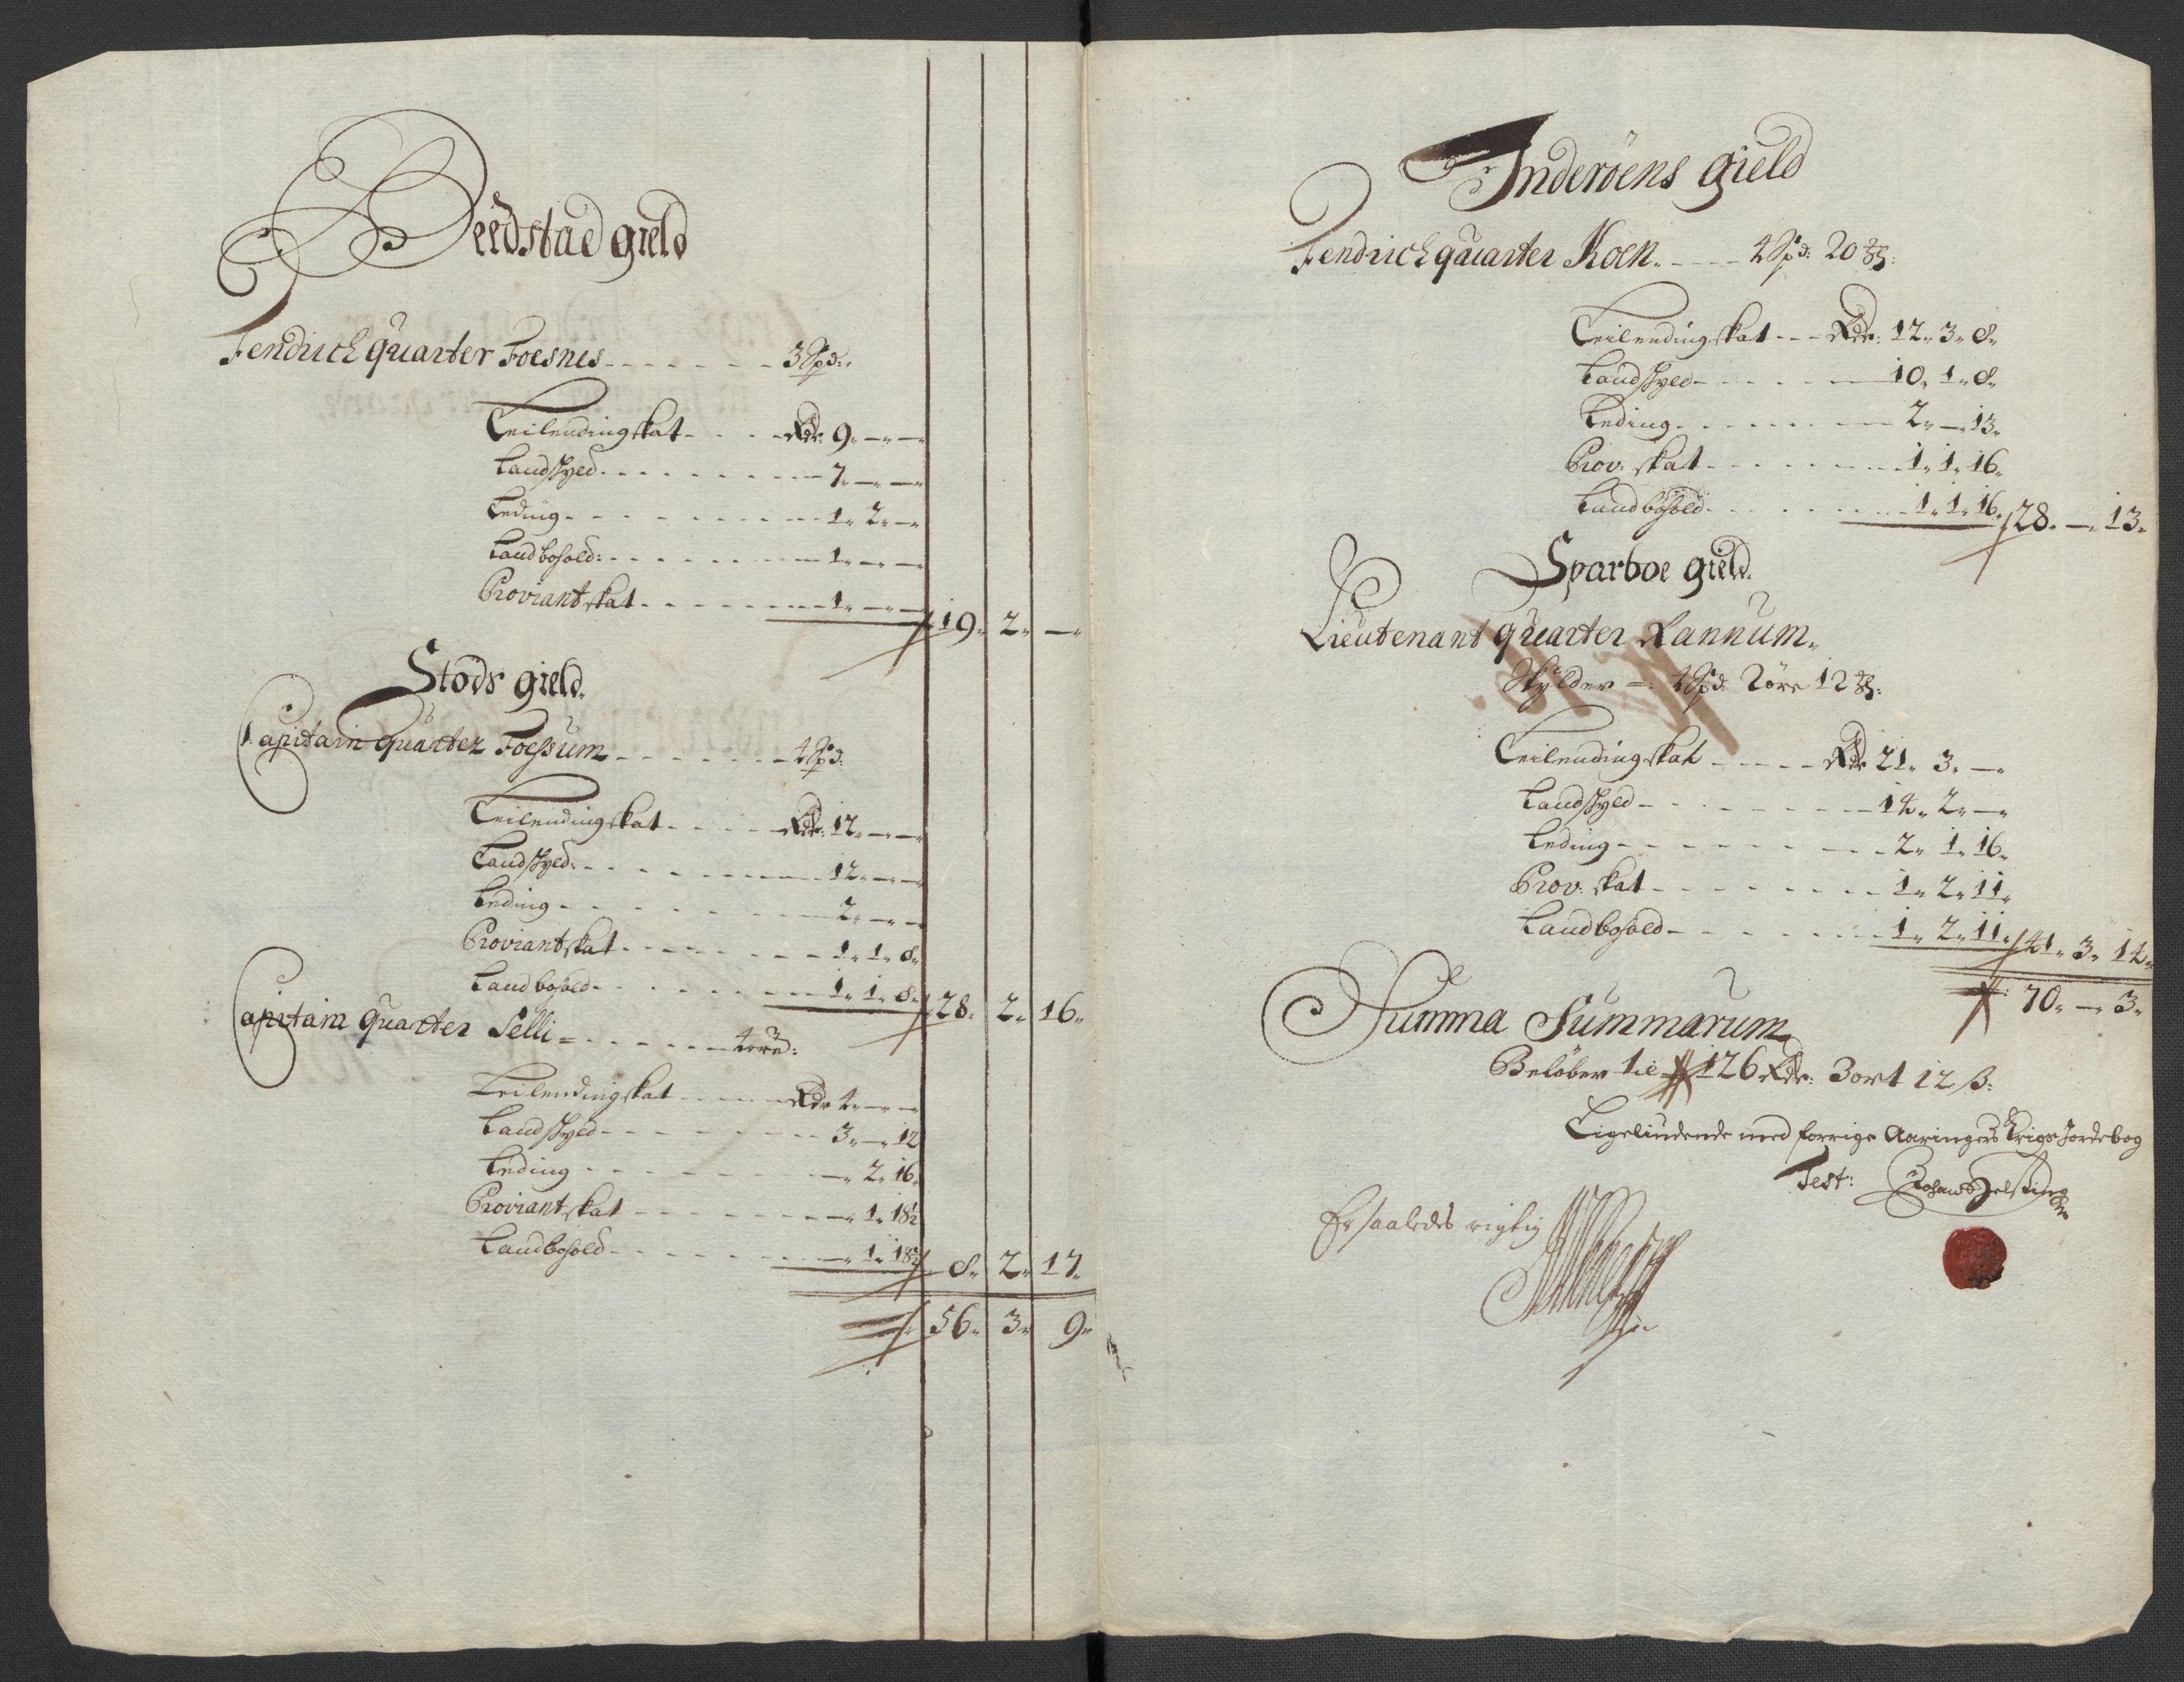 Beedstad gield
Fendrich quarter Foesnes - - - - - - - 3 Spd:
Leilending skat - - - - Rdr: 9 " — " —
Landskyld - - - - - - - - - 7 " — " —
Leding - - - - - - - - - 1 " 2 " —
Landbohold: - - - - - - - - 1 " — " —
Proviant skat - - - - - - - - 1 " — " — 19 " 2 " — "
Stods gield.
Capitain quarter Foessum - - - - - - - 4 Spd:
Leilending skat - - - - Rdr: 12 " — " —
Landskyld: - - - - - - - - 12 " — " —
Leding - - - - - - - - 2 " — " —
Proviant skat - - - - - - - 1 " 1 " 8 "
Landbohold - - - - - - - - 1 " 1 " 8 " 28 " 2 " 16 "
Capitain quarter Selli = - - - - - - 4 øre:
Leilending skat - - - - Rdr 4 " — " —
Landskyld - - - - - - - - 3 " — " 12
Leding - - - - - - - - — " 2 " 16 "
Proviant skat - - - - - - - — " 1 " 18½
Landbohold - - - - - - - - — " 1 " 18½ 8 " 2 " 17 "
56 " 3 " 9 "
Inderöens gield
Fendrich quarter Koen. - - - - 4 Spd: 20 mkr:
Leilending skat - - - Rdr: 12 " 3 " 8 "
Landskyld - - - - - - 10 " 1 " 8 "
Leding - - - - - - - - 2 " — " 13 "
Prov: skat - - - - - - - 1 " 1 " 16 "
Landbohold - - - - - - - 1 " 1 " 16 " 28 " — " 13 "
Sparboe gield.
Lieutenant quarter Rannum "
Skylder =: 4 Spd: 2 öre 12 mkr:
Leilending skat - - - - - Rdr 21 " 3 " — "
Landskyld - - - - - - - - 14 " 2 " — "
Leding - - - - - - - - - 2 " 1 " 16 "
Prov: skat - - - - - - - - 1 " 2 " 11 "
Landbohold - - - - - - - 1 " 2 " 11 " 41 " 3 " 14 "
70 " — " 3 "
Summa Summarum
Beløber til 126 Rdr: 3 ort 12 β:
Ligeliudende med forrige Aaringers Krigs Jordebog
Test:
Er saaledes rigtig